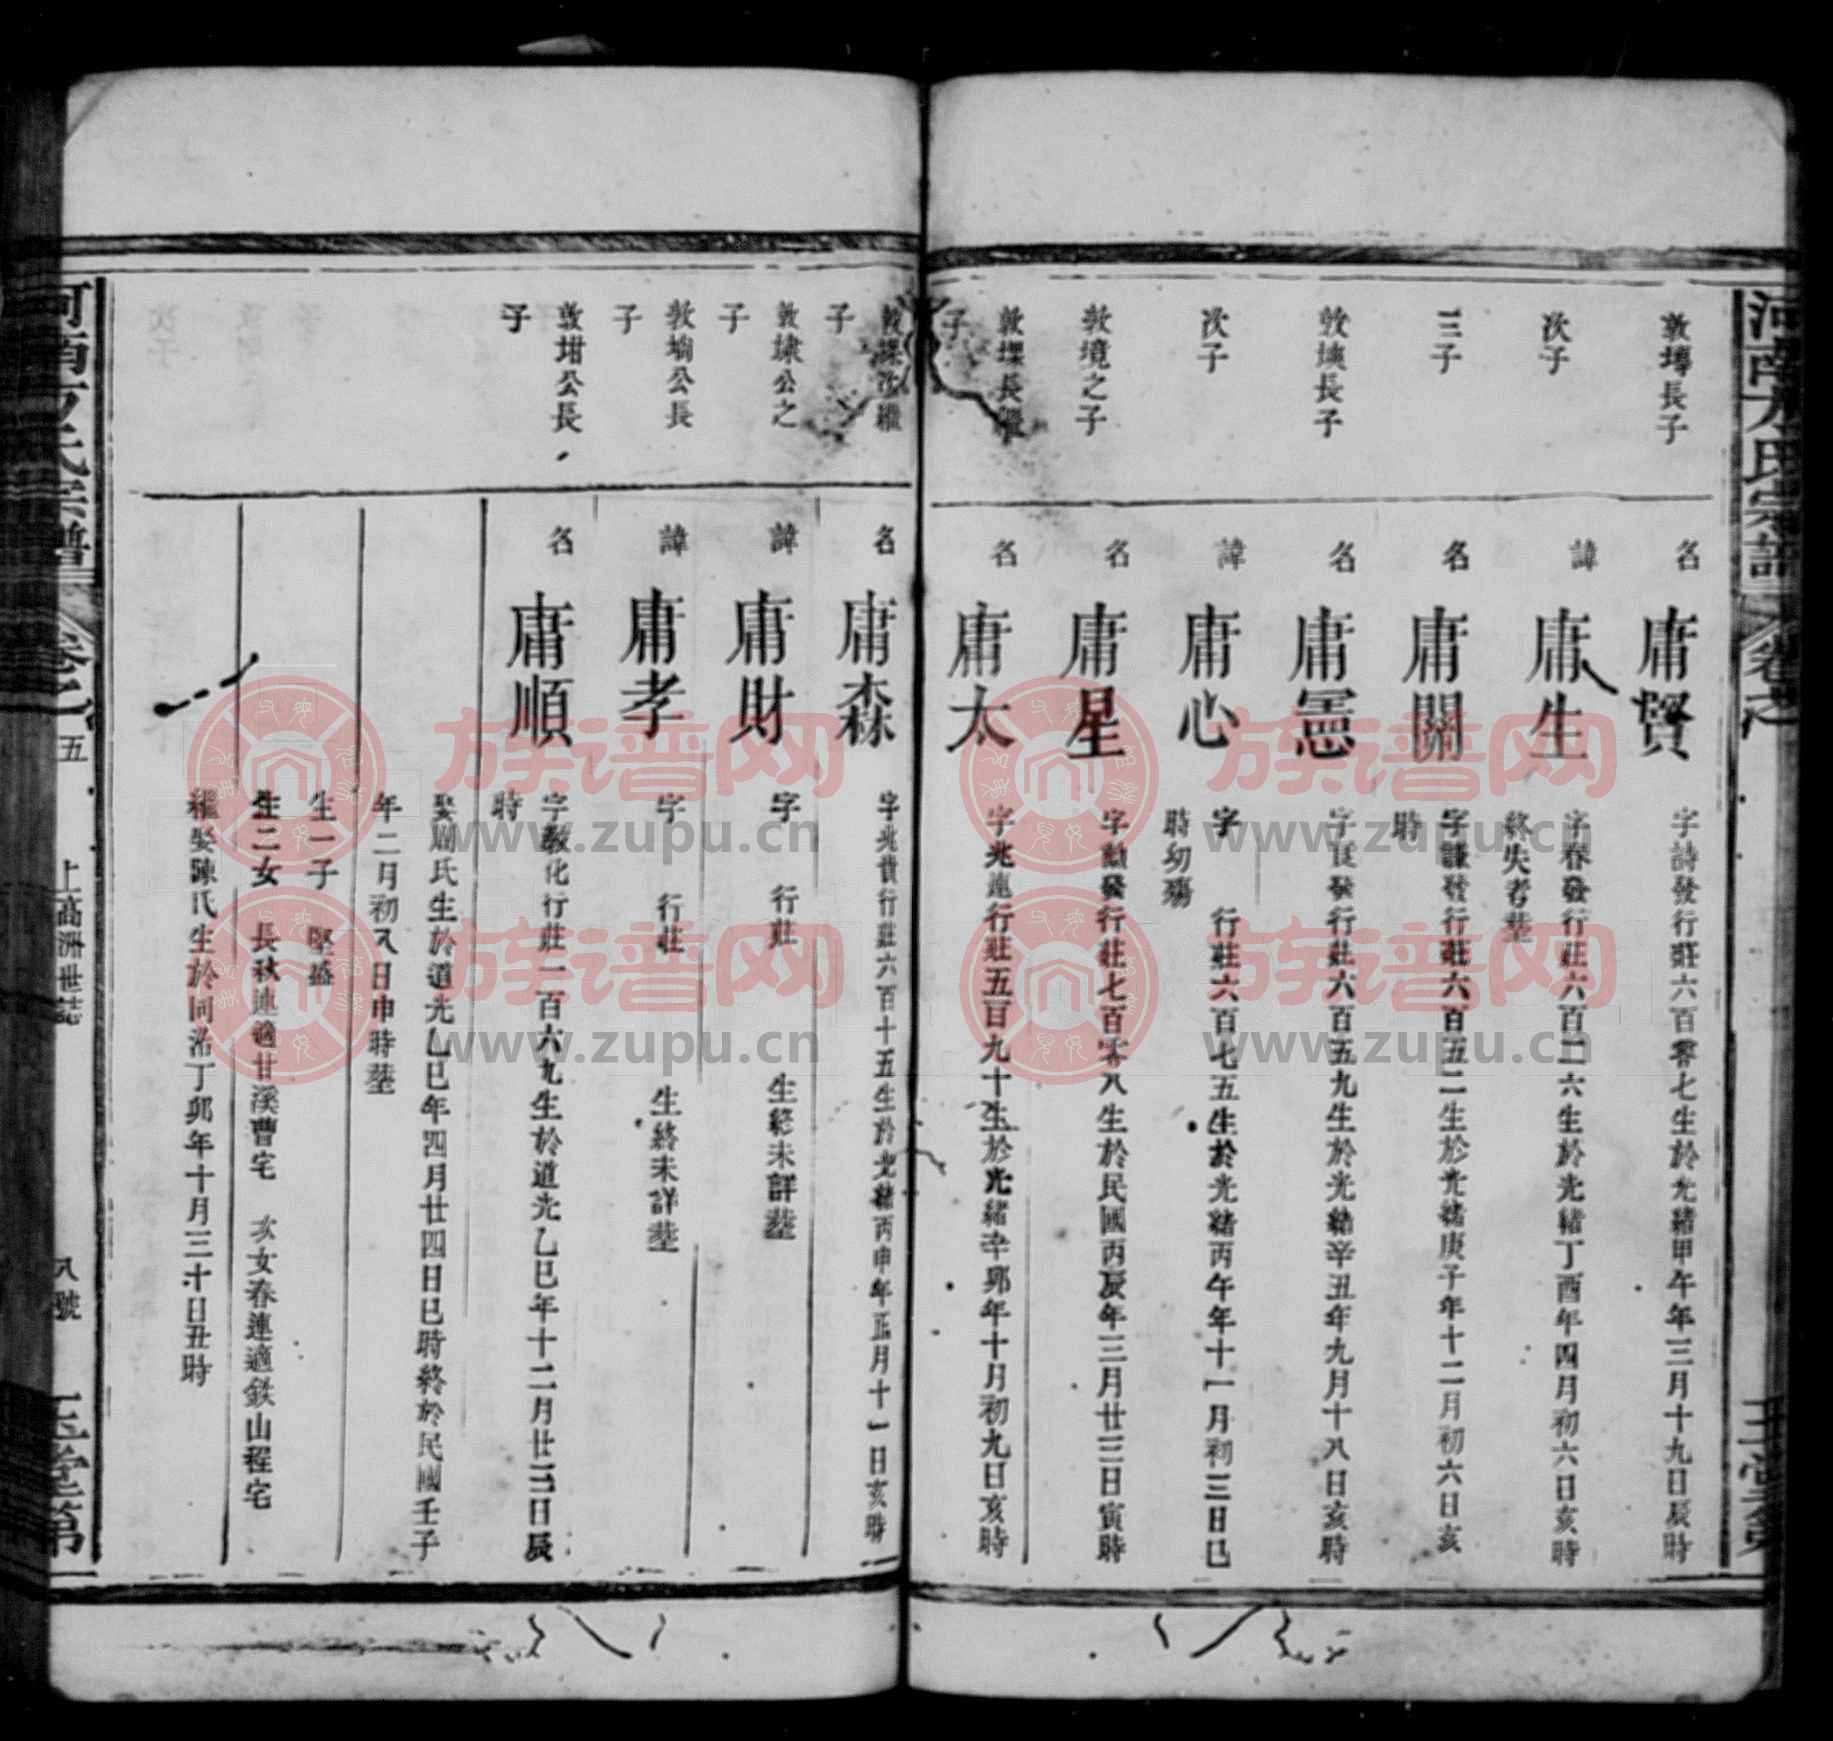 河南方氏宗譜
卷之
玉堂
敦塼長子
名 庸賢
字詩發行莊六百零七生於光緒甲午年三月十九日辰時
次子
諱 庸生
字春發行莊六百二六生於光緒丁酉年四月初六日亥時
終失考塟
三子
名 庸關
字謙發行莊六百五二生於光緒庚子年十二月初六日亥
時
長子
名 庸憲
字 發行莊六百五九生於光緒辛丑年九月十八日亥時
次子
諱 庸心
字 行莊六百七五生於光緒丙午年十一月初三日巳
時幼殤
敦境之子
名 庸星
字勳發行莊七百零八生於民國丙辰年三月廿三日寅時
敦堞長繼
子
名 庸太
字兆蓮行莊五百九十生於光緒辛卯年十月初九日亥時
敦堞次繼
子
名 庸森
字兆貴行莊六百十五生於光緒丙申年正月十一日亥時
敦埭公之
子
諱 庸財
字 行莊 生終未詳塟
敦堬公長
子
諱 庸孝
字 行莊 生終未詳塟
敦坩公長
子
名 庸順
字教化行莊一百六九生於道光乙巳年十二月廿三日辰
時
娶周氏生於道光乙巳年四月廿四日巳時終於民國壬子
年二月初八日申時塟
生一子 堅盛
生二女 長秋連適甘溪曹宅 次女春連適鉄山程宅
繼娶陳氏生於同治丁卯年十月三十日丑時
河南方氏宗譜
卷之五
上高洲世誌
八號
玉堂第
族谱网
www.zupu.cn
族谱网
www.zupu.cn
族谱网
www.zupu.cn
族谱网
www.zupu.cn